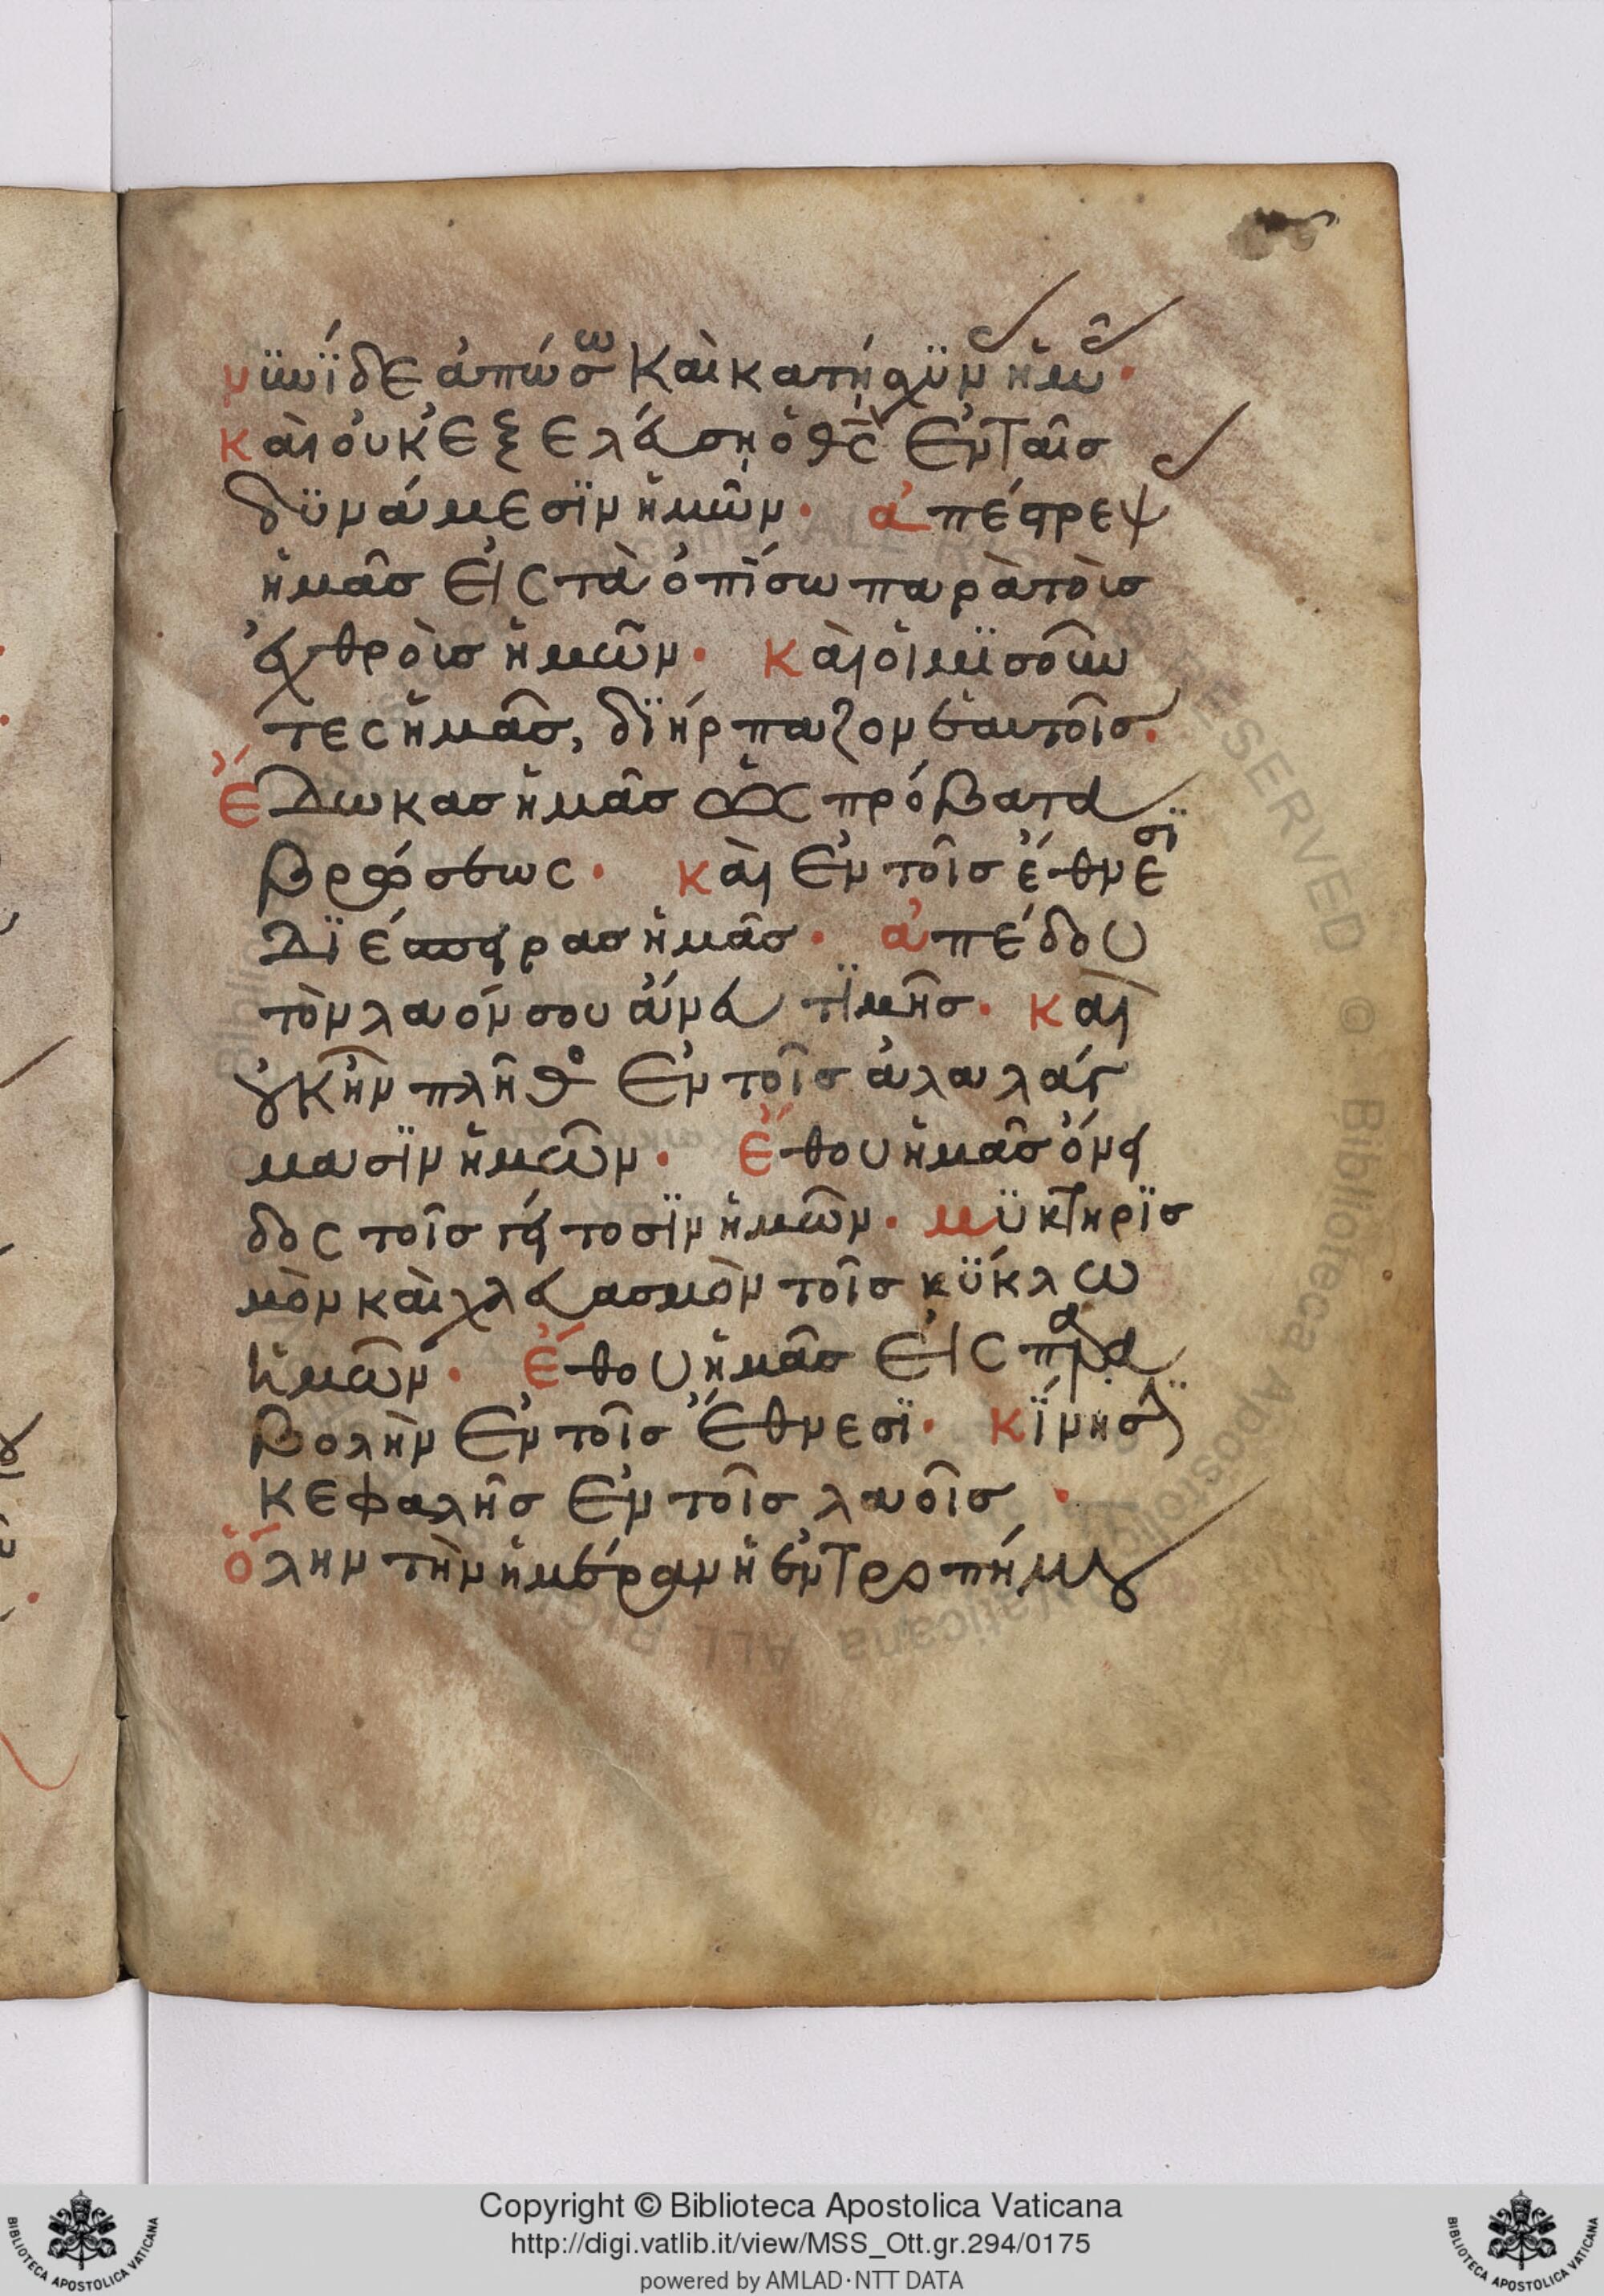 νϋνὶ δὲ ἀπώσω Καὶ κατήσχϋνας ἡμᾶς·
καὶ οὐκ ἐξελεύση ὁ θς ἐν ταῖς
δϋνάμεσϊν ἡμῶν· ἀπέστρεψας
ἡμᾶς εἰς τὰ ὀπίσω παρὰ τοὶς
ἐχθροὶς ἡμῶν· καὶ οἱ μϊσοῦν
τες ἡμᾶς, δϊήρπαζον ἑαυτοῖς·
ἔδωκας ἡμᾶς ὡς πρόβατα
βρώσεως· καὶ ἐν τοῖς ἔθνεσϊ
δϊέσπειρας ἡμᾶς· ἀπέδου
τὸν λαόν σου ἄνευ τϊμῆς· καὶ
οὐκ ἦν πλῆθος ἐν τοῖς ἀλαλάγ
μασϊν ἡμῶν· ἔθου ἡμᾶς ὄνει
δος τοῖς γείτοσϊν ἡμῶν· μϋκτηρϊσ
μὸν καὶ χλευασμὸν τοῖς κϋκλω
ἡμῶν· ἔθου ἡμᾶς εἰς παρα
βολὴν ἐν τοῖς ἔθνεσϊ· κΐνησϊν
κεφαλῆς ἐν τοῖς λαοῖς·
ὅλην τὴν ἡμέραν ἡ ἐντροπή μου
Copyright © Biblioteca Apostolica Vaticana
http://digi.vatlib.it/view/MSS_Ott.gr.294/0175
powered by AMLAD·NTT DATA